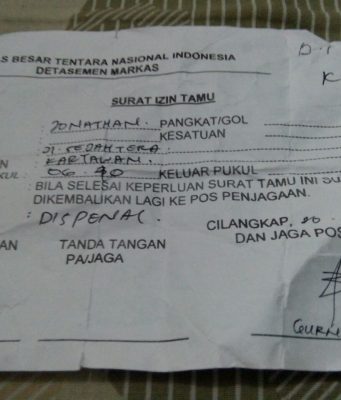 S BESAR TENTARA NASIONAL INDONESIA
DETASEMEN MARKAS
D-1
K
SURAT IZIN TAMU
: JONATHAN. PANGKAT/GOL
: KESATUAN
: Jl. SEJAHTERA
AN KARYAWAN.
KUL : 06.40 KELUAR PUKUL :
: BILA SELESAI KEPERLUAN SURAT TAMU INI SU
DIKEMBALIKAN LAGI KE POS PENJAGAAN.
: DISPENAL.
CILANGKAP, 20
AN TANDA TANGAN DAN JAGA POS
PA/JAGA